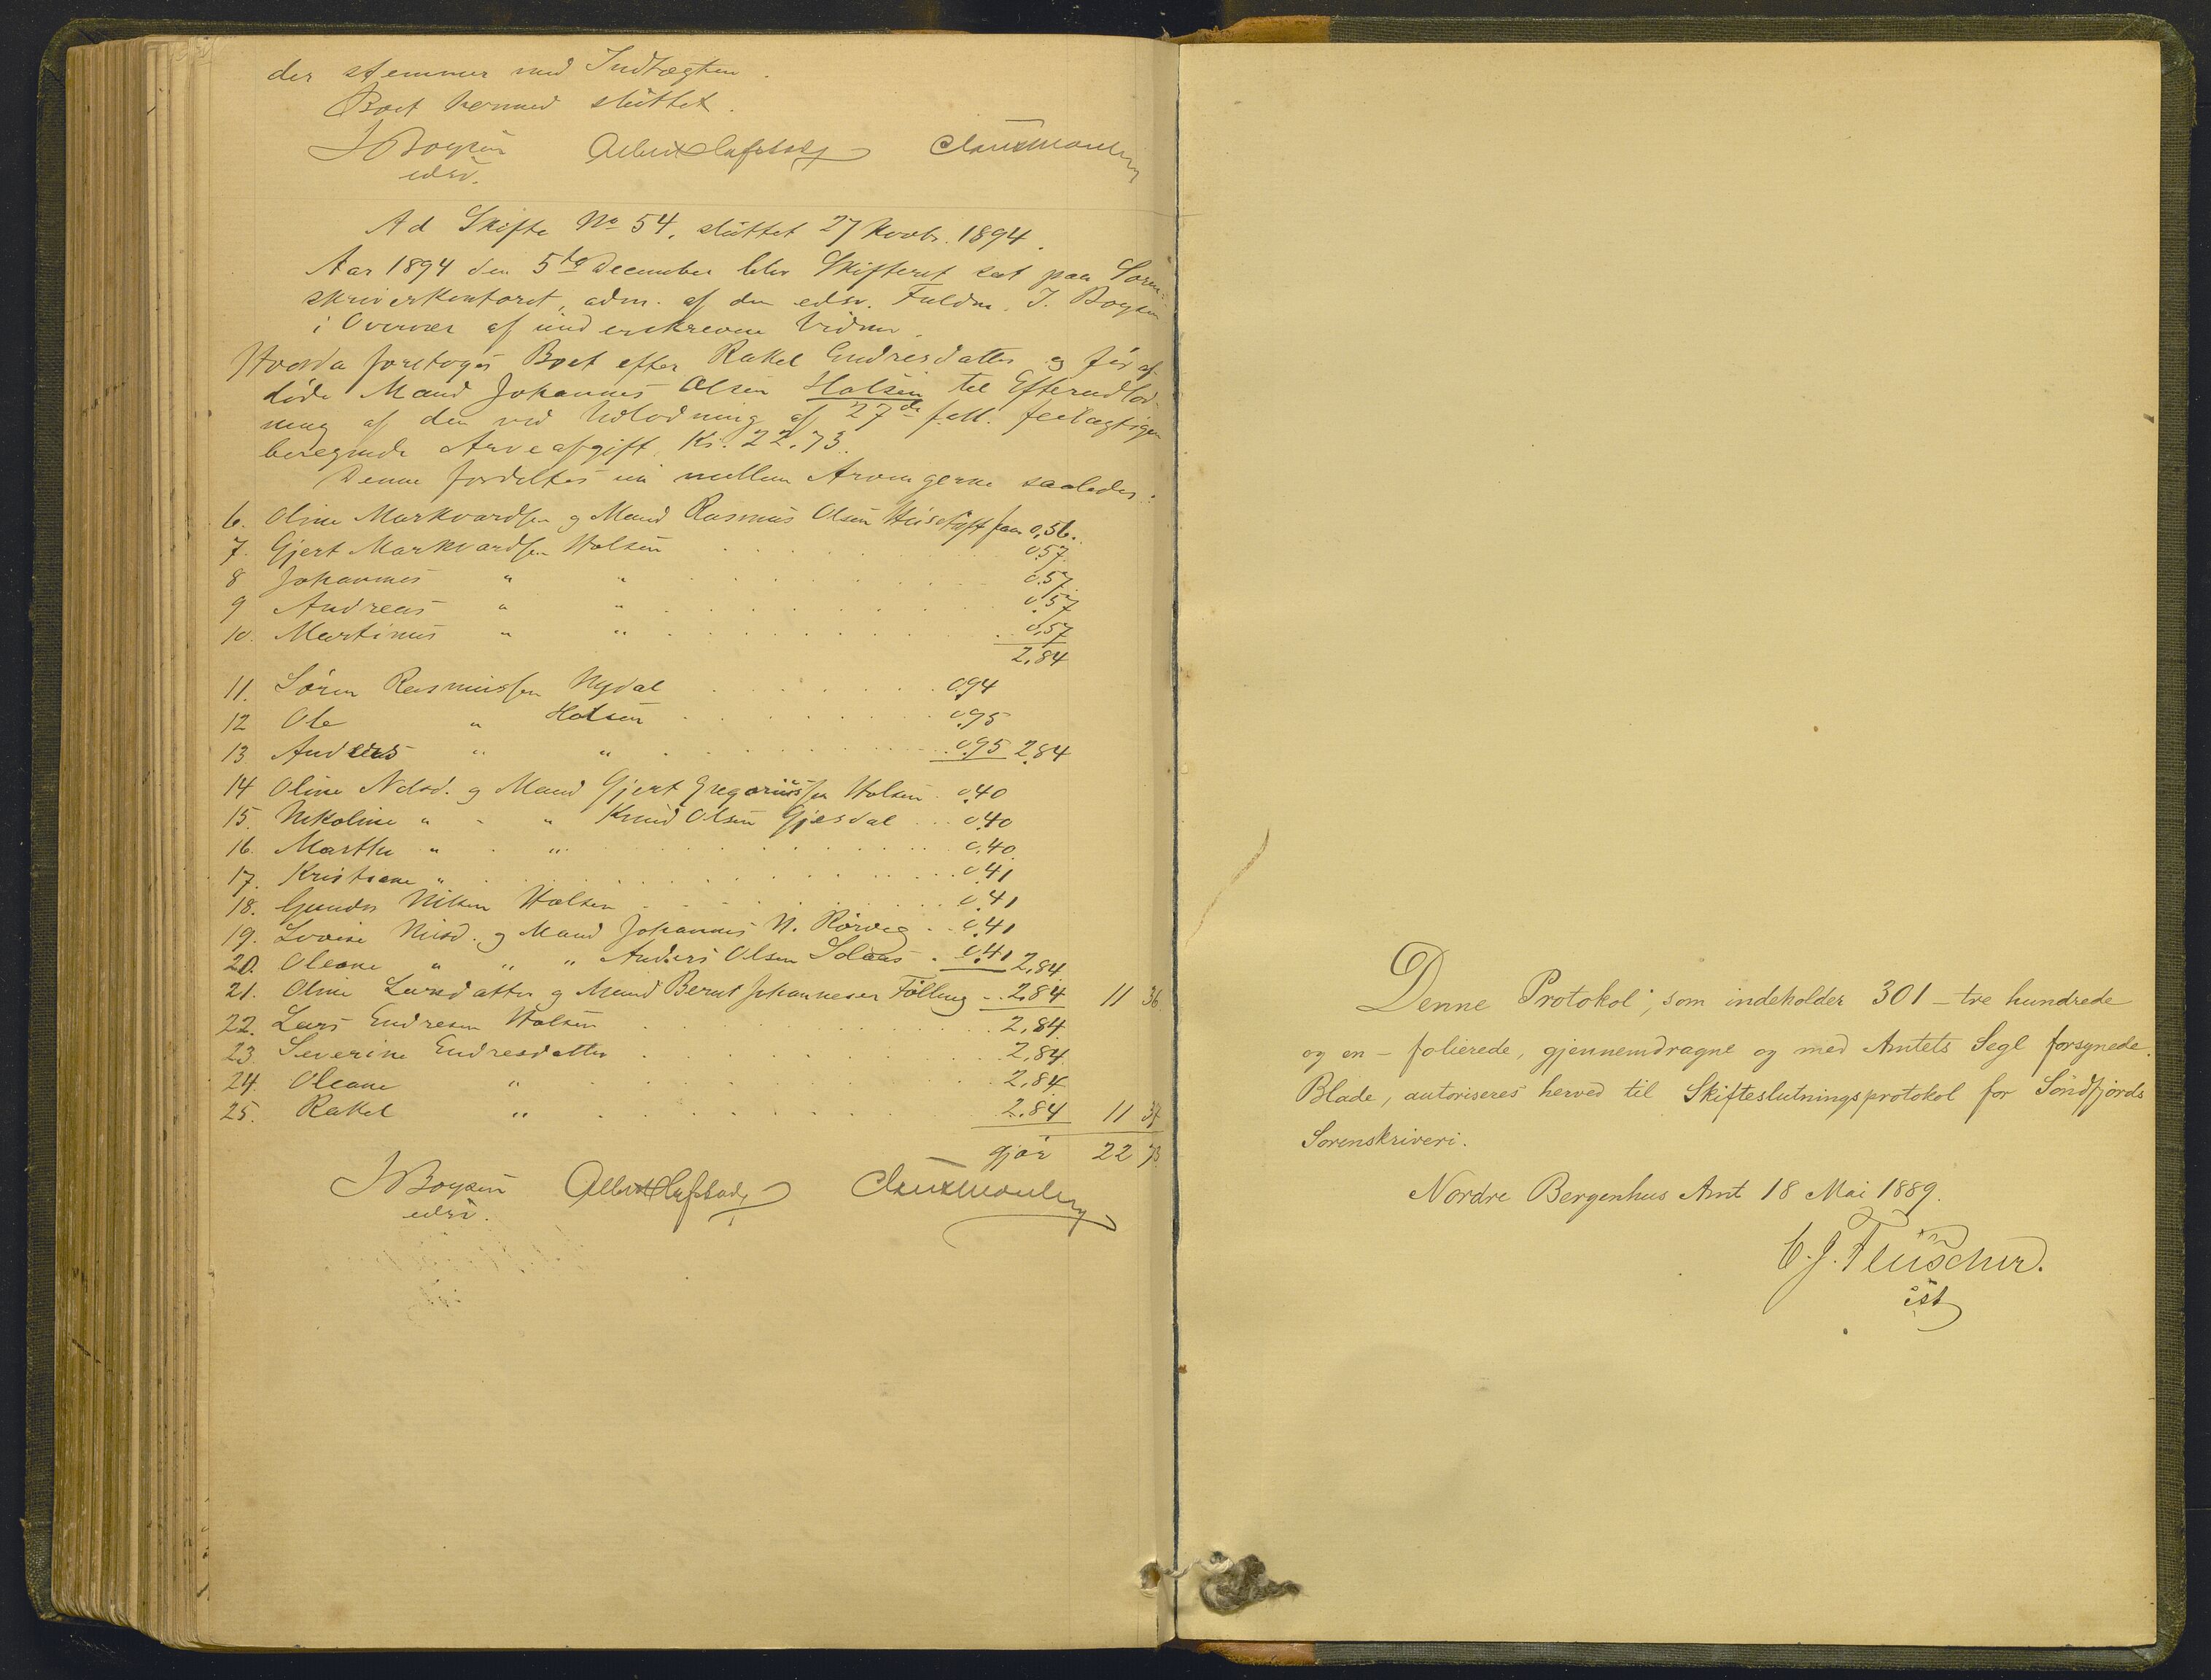 der stemmer med Indtægten.
Boet hermed sluttet.
J Boysen
edsv.
Ad Skifte No 54, sluttet 27 Novbr. 1894.
Aar 1894 den 5te December blev Skifteret sat paa Soren-
skriverkontoret, adm. af den edsv. Fuldm. J. Boysen
i Overvær af underskrevne Vidner.
Hvorda foretoges Boet efter Rakel Endresdatter og før af-
døde Mand Johannes Olsen Holsen til Efterudlod-
ning af den ved Udlodning af 27de f. M. feilagtigen
beregnede Arveafgift, Kr. 22.73.
Denne fordeltes nu mellem Arvingerne saaledes:
6. Oline Markvardsen og Mand Rasmus Olsen Husetuft faar 0,56.
7. Gjert Markvardsen Holsen 0.57
8 Johannes " " 0.57
9 Andreas " " 0.57
10. Martinus " " 0,57
2,84
11. Søren Rasmussen Nydal 0.94
12 Ole " Holsen 0.95
13 Andreas " " 0.95 2.84
14 Oline Nilsd. og Mand Gjert Gregoriussen Holsen 0.40
15. Nikoline " - " Knud Olsen Gjesdal 0.40
16. Marthe " - " 0.40
17. Kristiane " 0.41
18. Gunder Nilsen Holsen 0.41
19. Lovise Nilsd. og Mand Johannes N. Rørvig 0.41
20. Oleane " " " Anders Olsen Solaas 0.41 2,84
21. Oline Larsdatter og Mand Bernt Johannesen Følling 2.84 11 36
22. Lars Endresen Holsen 2,84
23. Severine Endresdatter 2,84
24. Oleane " 2,84
25. Rakel " 2.84 11 37
gjør 22 73
J Boysen
edsv.
Denne Protokol, som indeholder 301 – tre hundrede
og en – folierede, gjennemdragne og med Amtets Segl forsynede
Blade, autoriseres herved til Skifteslutningsprotokol for Søndfjords
Sorenskriveri.
Nordre Bergenhus Amt 18 Mai 1889.
C. J. Fleischer.
cst